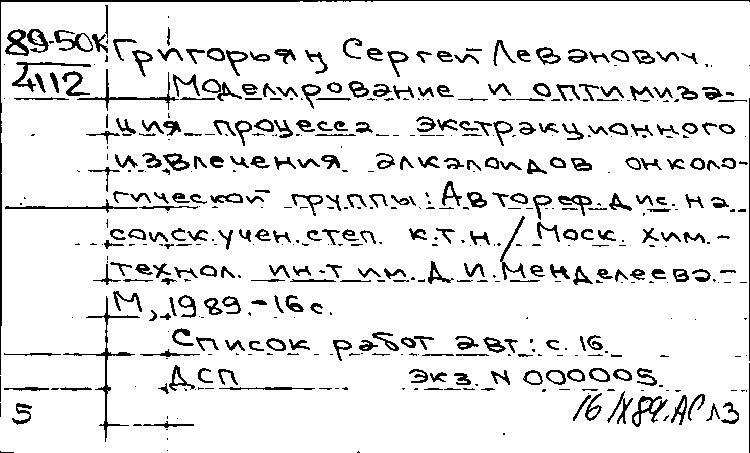 89-50к
4112
Григорьян Сергей Леванович.
Моделирование и оптимиза-
ция процесса экстракционного
извлечения алкалоидов онколо-
гической группы: Автореф. дис. на
соиск. учен. степ. к.т.н. / Моск. хим.-
технол. ин-т им. Д.И. Менделеева.-
М., 1989.-16 с.
Список работ авт.: с. 16.
ДСП экз. N 000005.
5
16 IX 89.